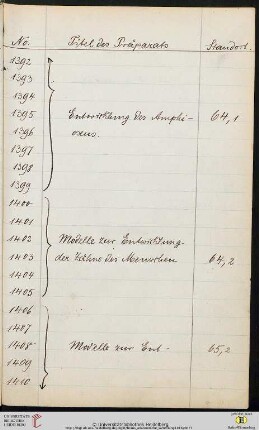 No. Titel des Präparats Standort.
1392
1393
1394
1395 Entwicklung des Amphi- 64,1
1396 oxus.
1397
1398
1399
1400
1401
1402 Modelle zur Entwicklung
1403 der Zähne des Menschen 64,2
1404
1405
1406
1407
1408 Modelle zur Ent- 65,2
1409
1410
© Universitätsbibliothek Heidelberg